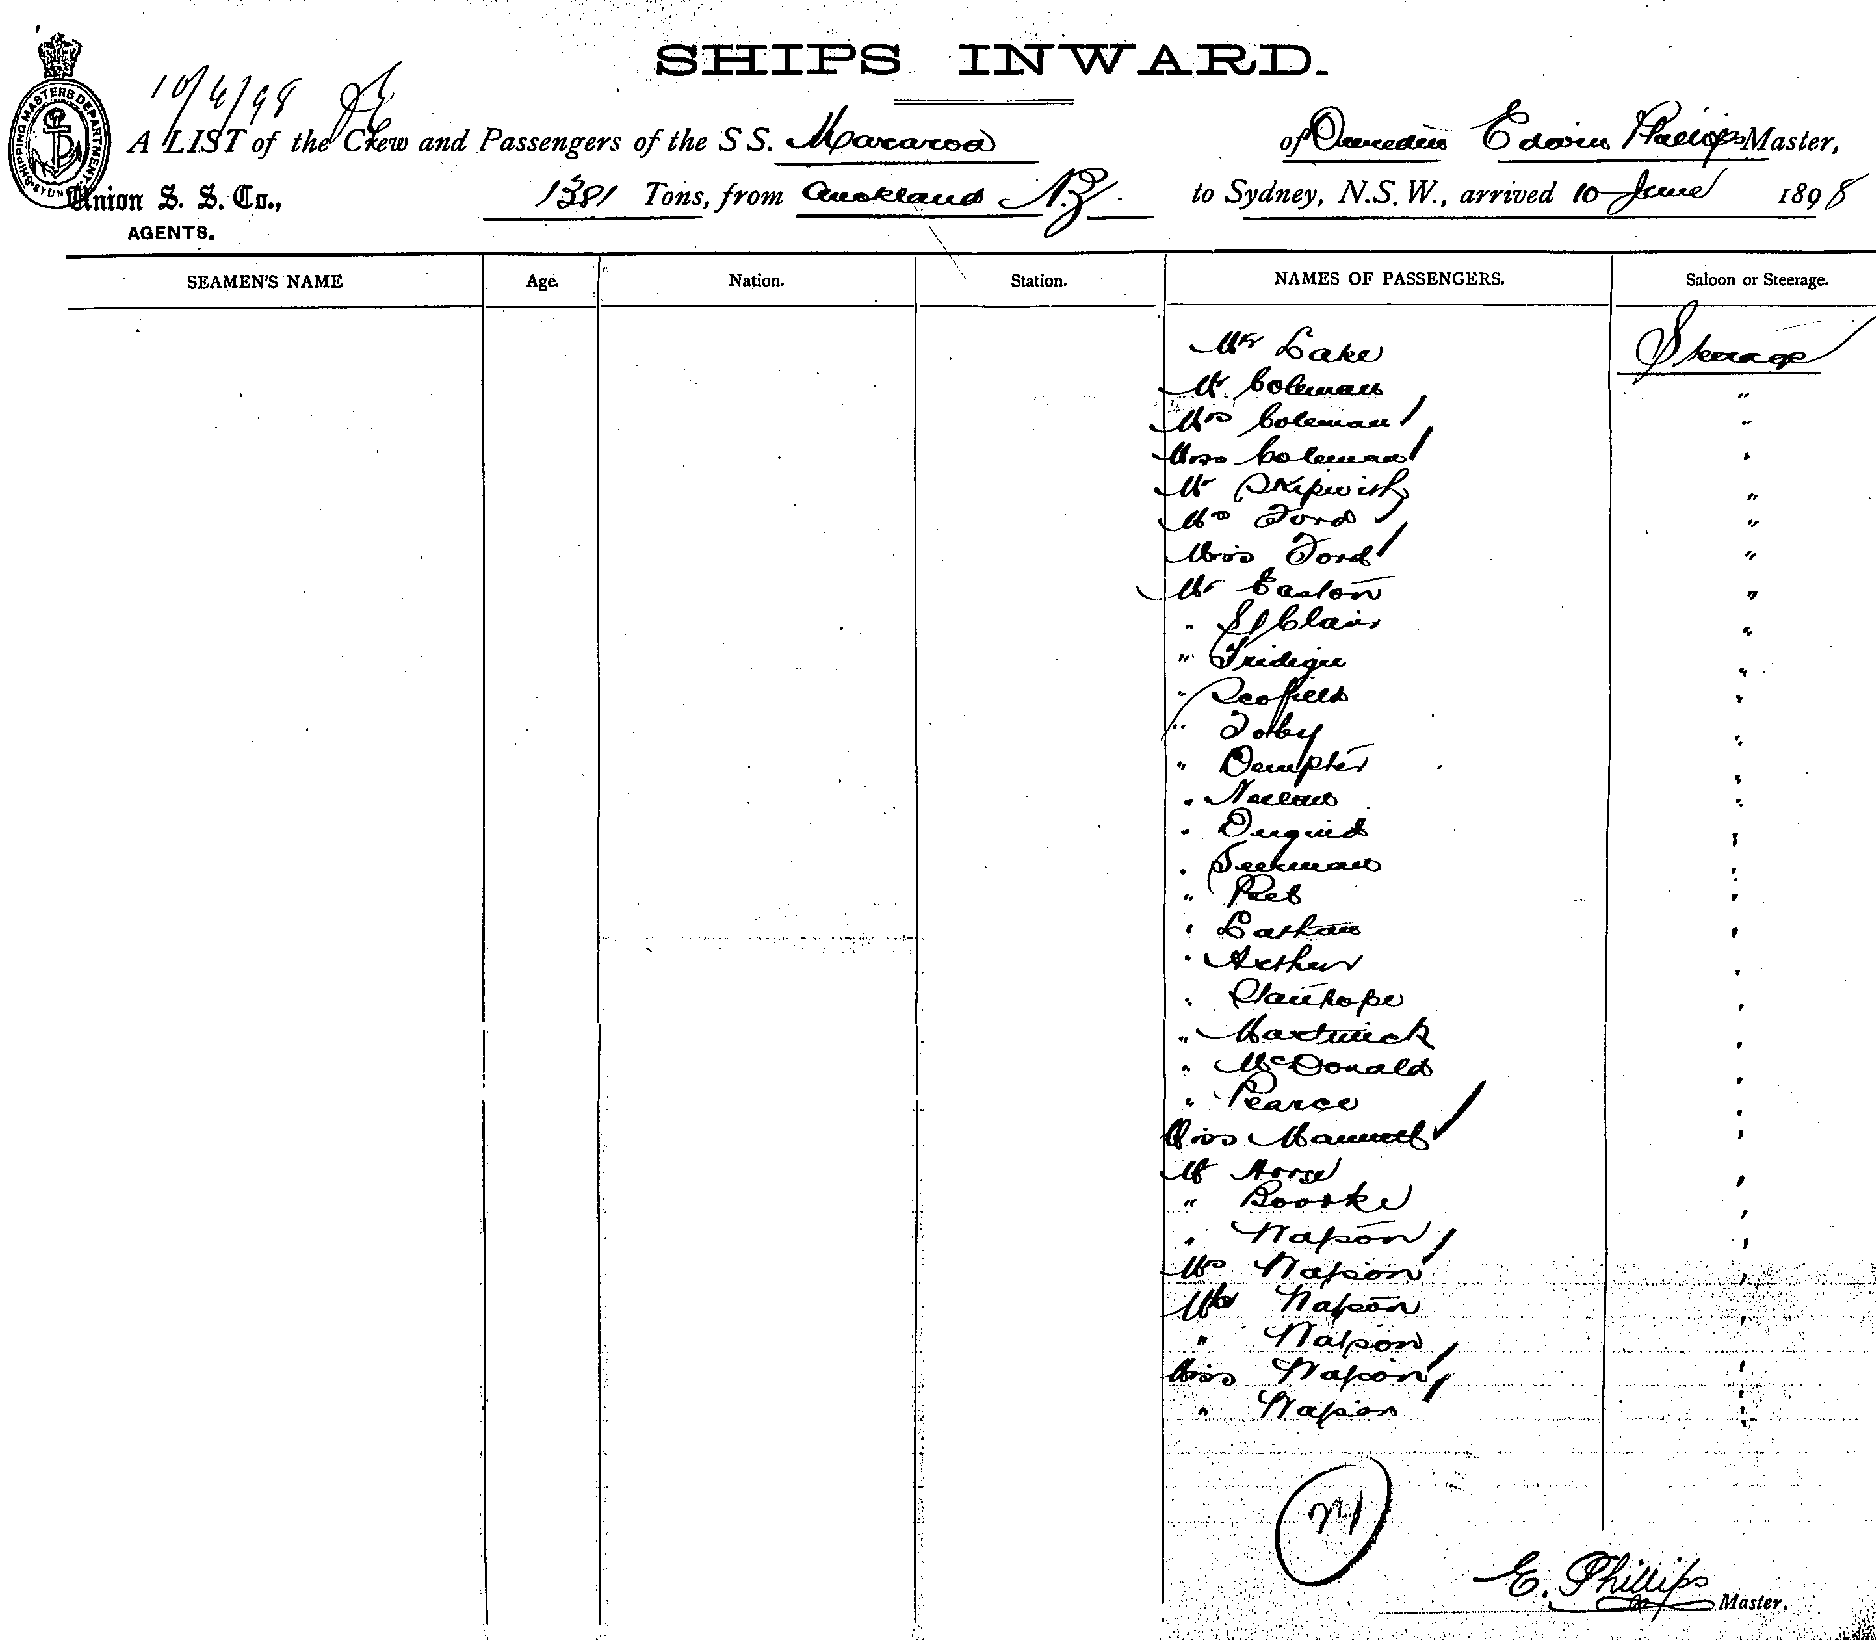 SHIPS INWARD.
10/6/98
SHIPPING MASTERS DEPARTMENT. SYDNEY
A LIST of the Crew and Passengers of the S S. Mararoa of Dunedin Edwin Phillips Master,
Union S. S. Co., 1381 Tons, from Auckland N.Z. to Sydney, N.S.W., arrived 10 June 1898
AGENTS.
SEAMEN'S NAME Age. Nation. Station. NAMES OF PASSENGERS. Saloon or Steerage.
Mr Lake Steerage
Mr Coleman "
Mrs Coleman "
Miss Coleman "
Mr Skipwith "
Mrs Ford "
Miss Ford "
Mr Easton "
" St Clair "
" "
" Scofield "
" Toby "
" Dempster "
" "
" Duguid "
" "
" Peet "
" "
" Arthur "
" Stanhope "
" "
" McDonald "
" Pearce "
Miss "
Mr "
" Boorke "
" Napson "
Mrs Napson "
Napson "
" Napson "
Miss Napson "
" Napson "
E. Phillips
Master.